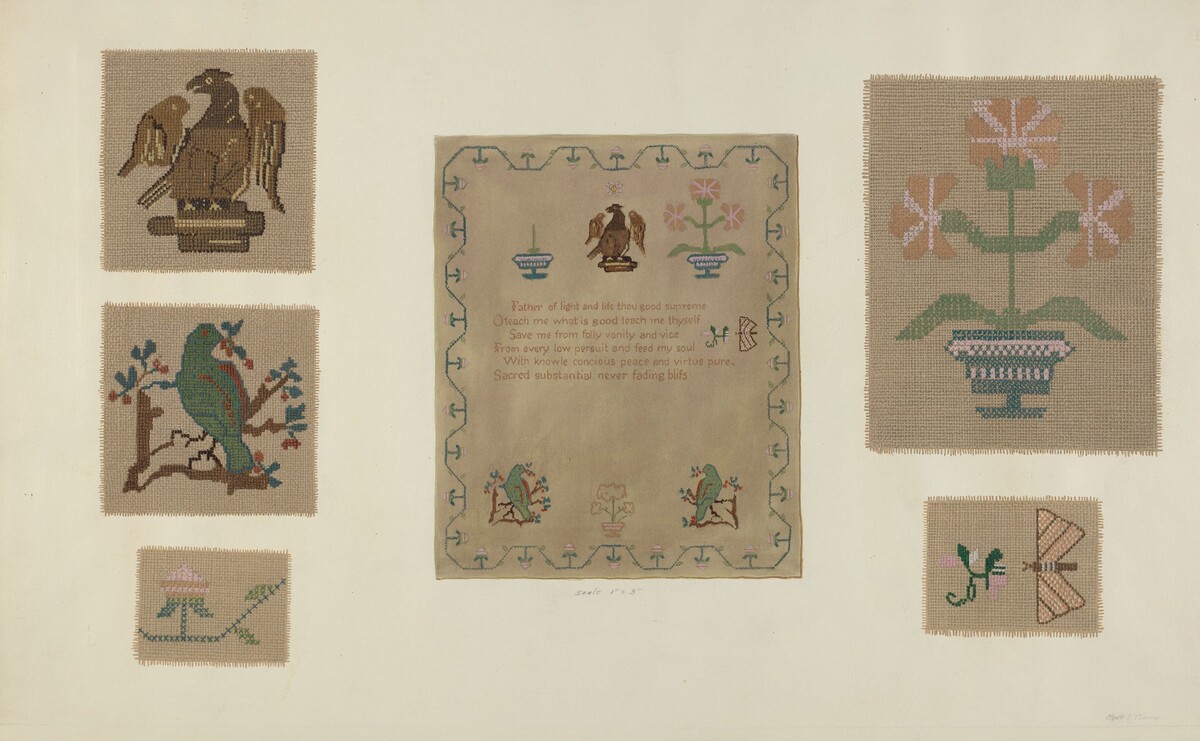 Father of light and life thou good supreme
O teach me what is good teach me thyself
Save me from folly vanity and vice
From every low persuit and feed my soul
With knowle concious peace and virtue pure.
Sacred substantial never fading blifs
scale 1" = 3"